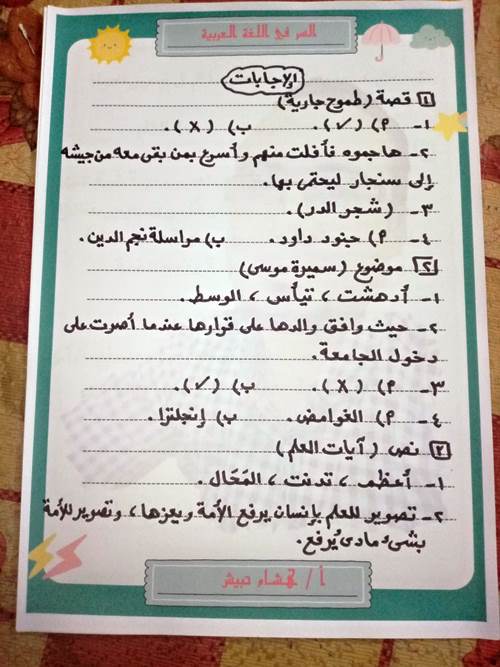 السر في اللغة العربية
الإجابات
١ قصة (طموح جارية)
١- ٢) (✓). ب) (X).
٢- هاجموه فأفلت منهم وأسرع بمن بقى معه من جيشه
إلى سنجار ليحتمى بها.
٣- (شجر الدر).
٤- ٢) جنود داود. ب) مراسلة نجم الدين.
٢ موضوع (سميرة موسى)
١- أدهشت ، تيأس ، الوسط.
٢- حيث وافق والدها على قرارها عندما أصرت على
دخول الجامعة.
٣- ٢) (X). ب) (✓).
٤- ٢) الغوامض. ب) إنجلترا.
٣ نص (آيات العلم)
١- أعظم ، تدنت ، المَحَال.
٢- تصوير للعلم بإنسان يرفع الأمة ويعزها ، وتصوير للأمة
بشىء مادى يُرفع.
أ / هشام حبيش